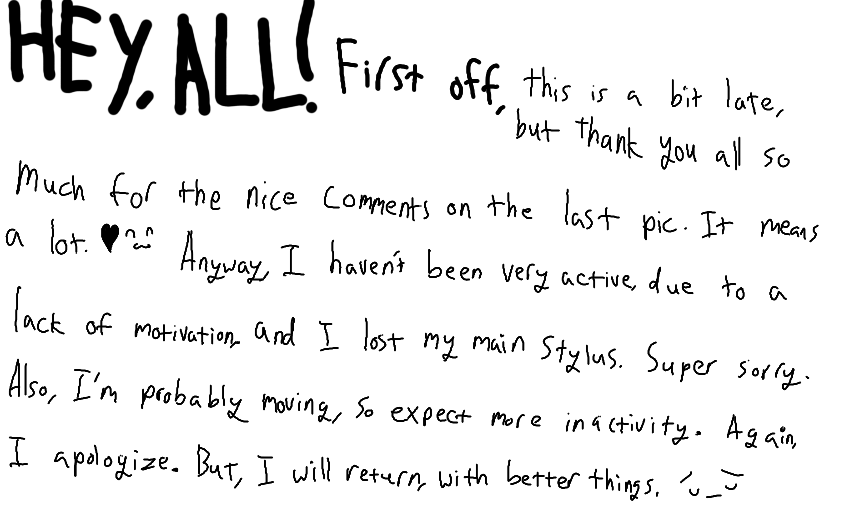 HEY, ALL! First off, this is a bit late,
but thank you all so
Much for the nice comments on the last pic. It means
a lot. ♥ ^‿^ Anyway, I haven't been very active, due to a
lack of motivation, and I lost my main stylus. Super sorry.
Also, I'm probably moving, so expect more inactivity. Again,
I apologize. But, I will return, with better things.